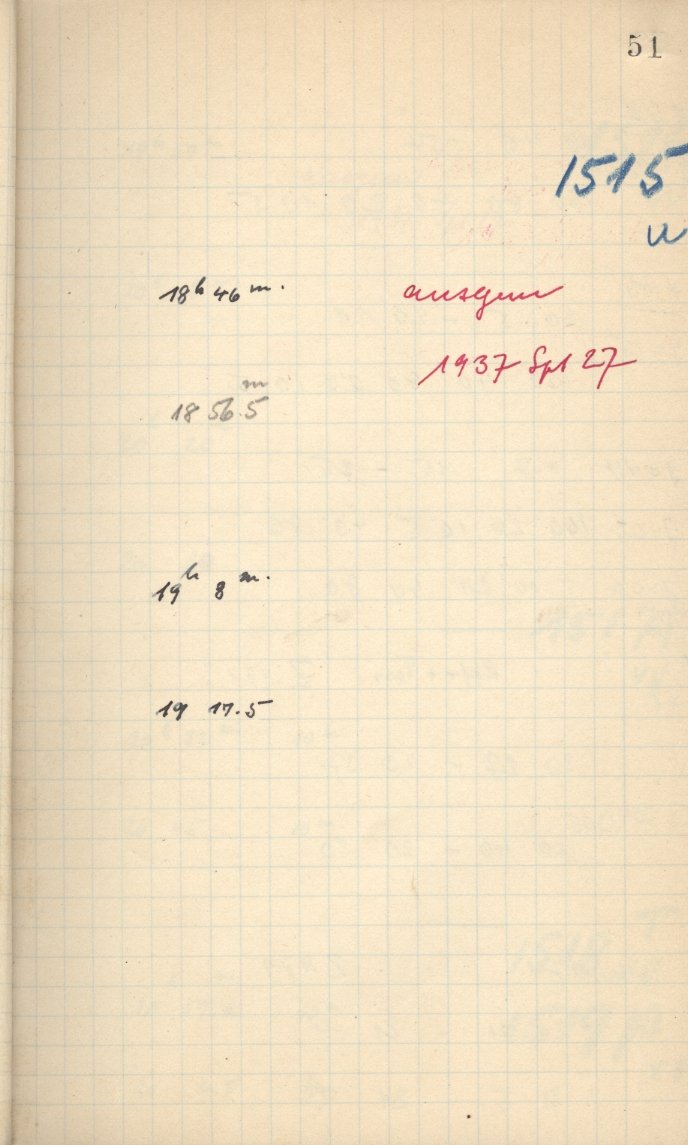 51
1515
u
18h 46m. ausgem
1937 Spt 27
18 56.5m
19h 8m.
19 17.5